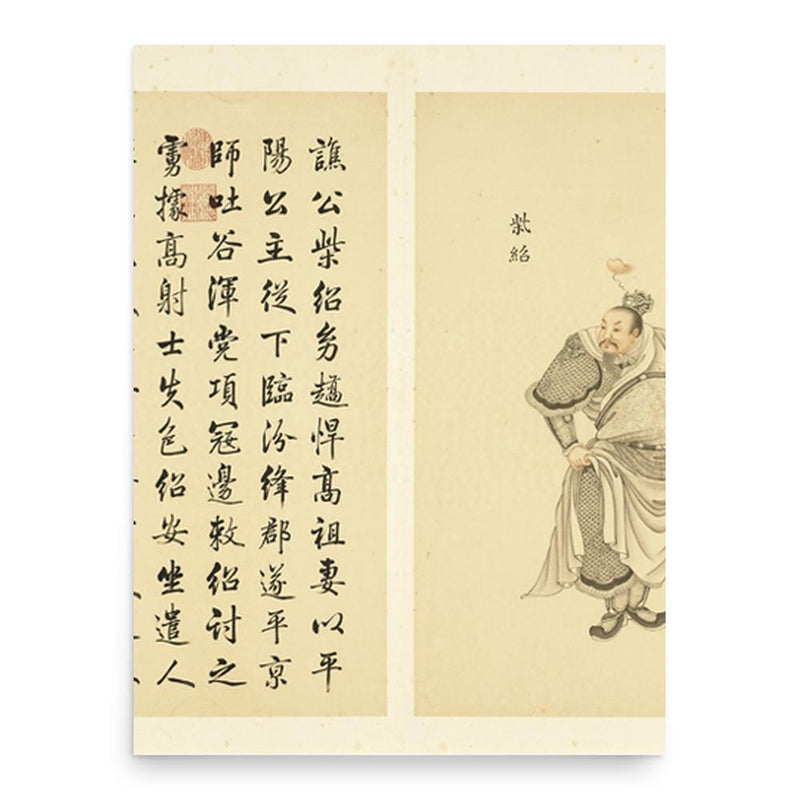 柴紹
譙公柴紹幼趫悍髙祖妻以平
陽公主從下臨汾絳郡遂平京
師吐谷渾党項寇邊敕紹討之
虜據髙射士失色紹安坐遣人